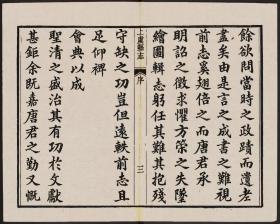 餘欲問當時之政蹟而遺老
盡矣由是言之成書之難視
前志奚翅倍之而唐君承
明詔之徵求懼方策之失墜
繪圖輯志躬任其難其抱殘
上虞縣志
序
三
守缺之功豈但遠軼前志且
足仰裨
會典以成
聖清之盛治其有功於文獻
甚鉅余既嘉唐君之勤又慨